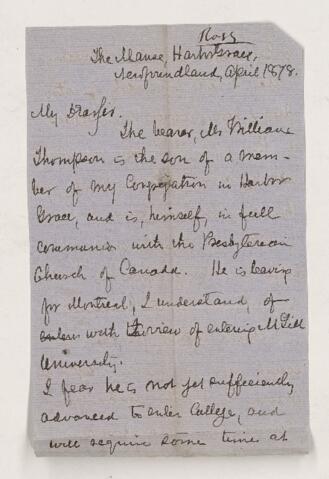 Ross
The Manse, Harbor Grace,
Newfoundland, April 1878.
My Dear Sir.
The bearer, Mr William
Thompson is the son of a mem-
ber of my Congregation in Harbor
Grace, and is, himself, in full
communion with the Presbyterian
Church of Canada. He is leaving
for Montreal, I understand, of
with view of entering McGill
University.
I fear he is not yet sufficiently
advanced to enter College, and
will require some time at